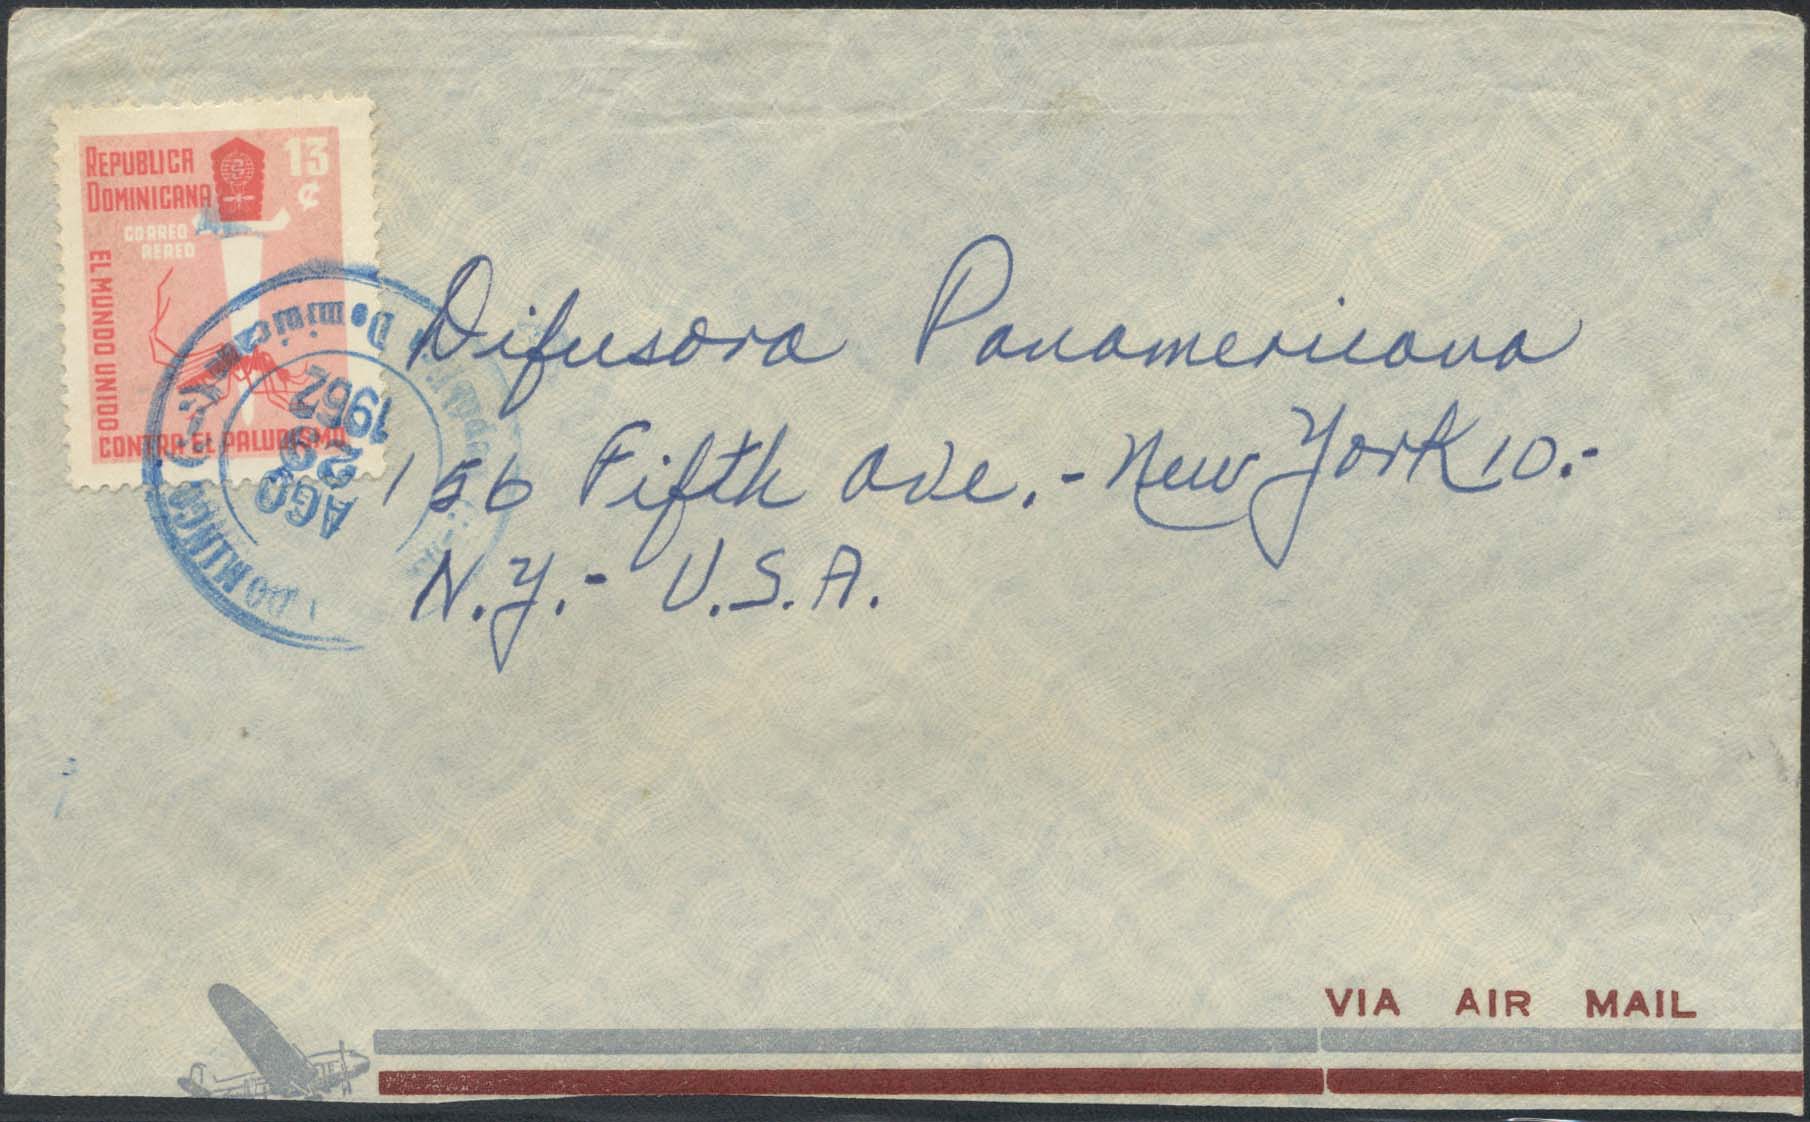 REPUBLICA
DOMINICANA
13
¢
CORREO
AEREO
EL MUNDO UNIDO
CONTRA EL PALUDISMO
DOMINGO
Dominicana
AGO
29
1962
Difusora Panamericana
156 Fifth Ave.- New York 10.-
N.Y.- U.S.A.
VIA AIR MAIL